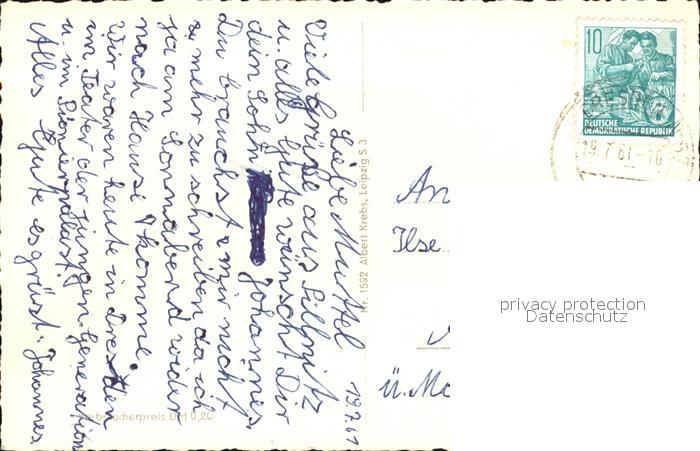 Liebe Muttel 19.7.61
Viele Grüße aus Pillnitz
u. alles Gute wünscht Dir
dein Sohn Johannes.
Du brauchst mir nicht
mehr zu schreiben da ich
ja am Sonnabend wider
nach Hause komme.
Wir waren heute in Dresden
im Teater der jungen Generation
u. im Pionierpalast.
Alles Gute es grüsst: Johannes.
Nr. 1592 Albert Krebs, Leipzig S 3
Verbraucherpreis DM 0,20
10
DEUTSCHE
DEMOKRATISCHE REPUBLIK
19.7.61-16
An
Ilse
ü.
privacy protection
Datenschutz